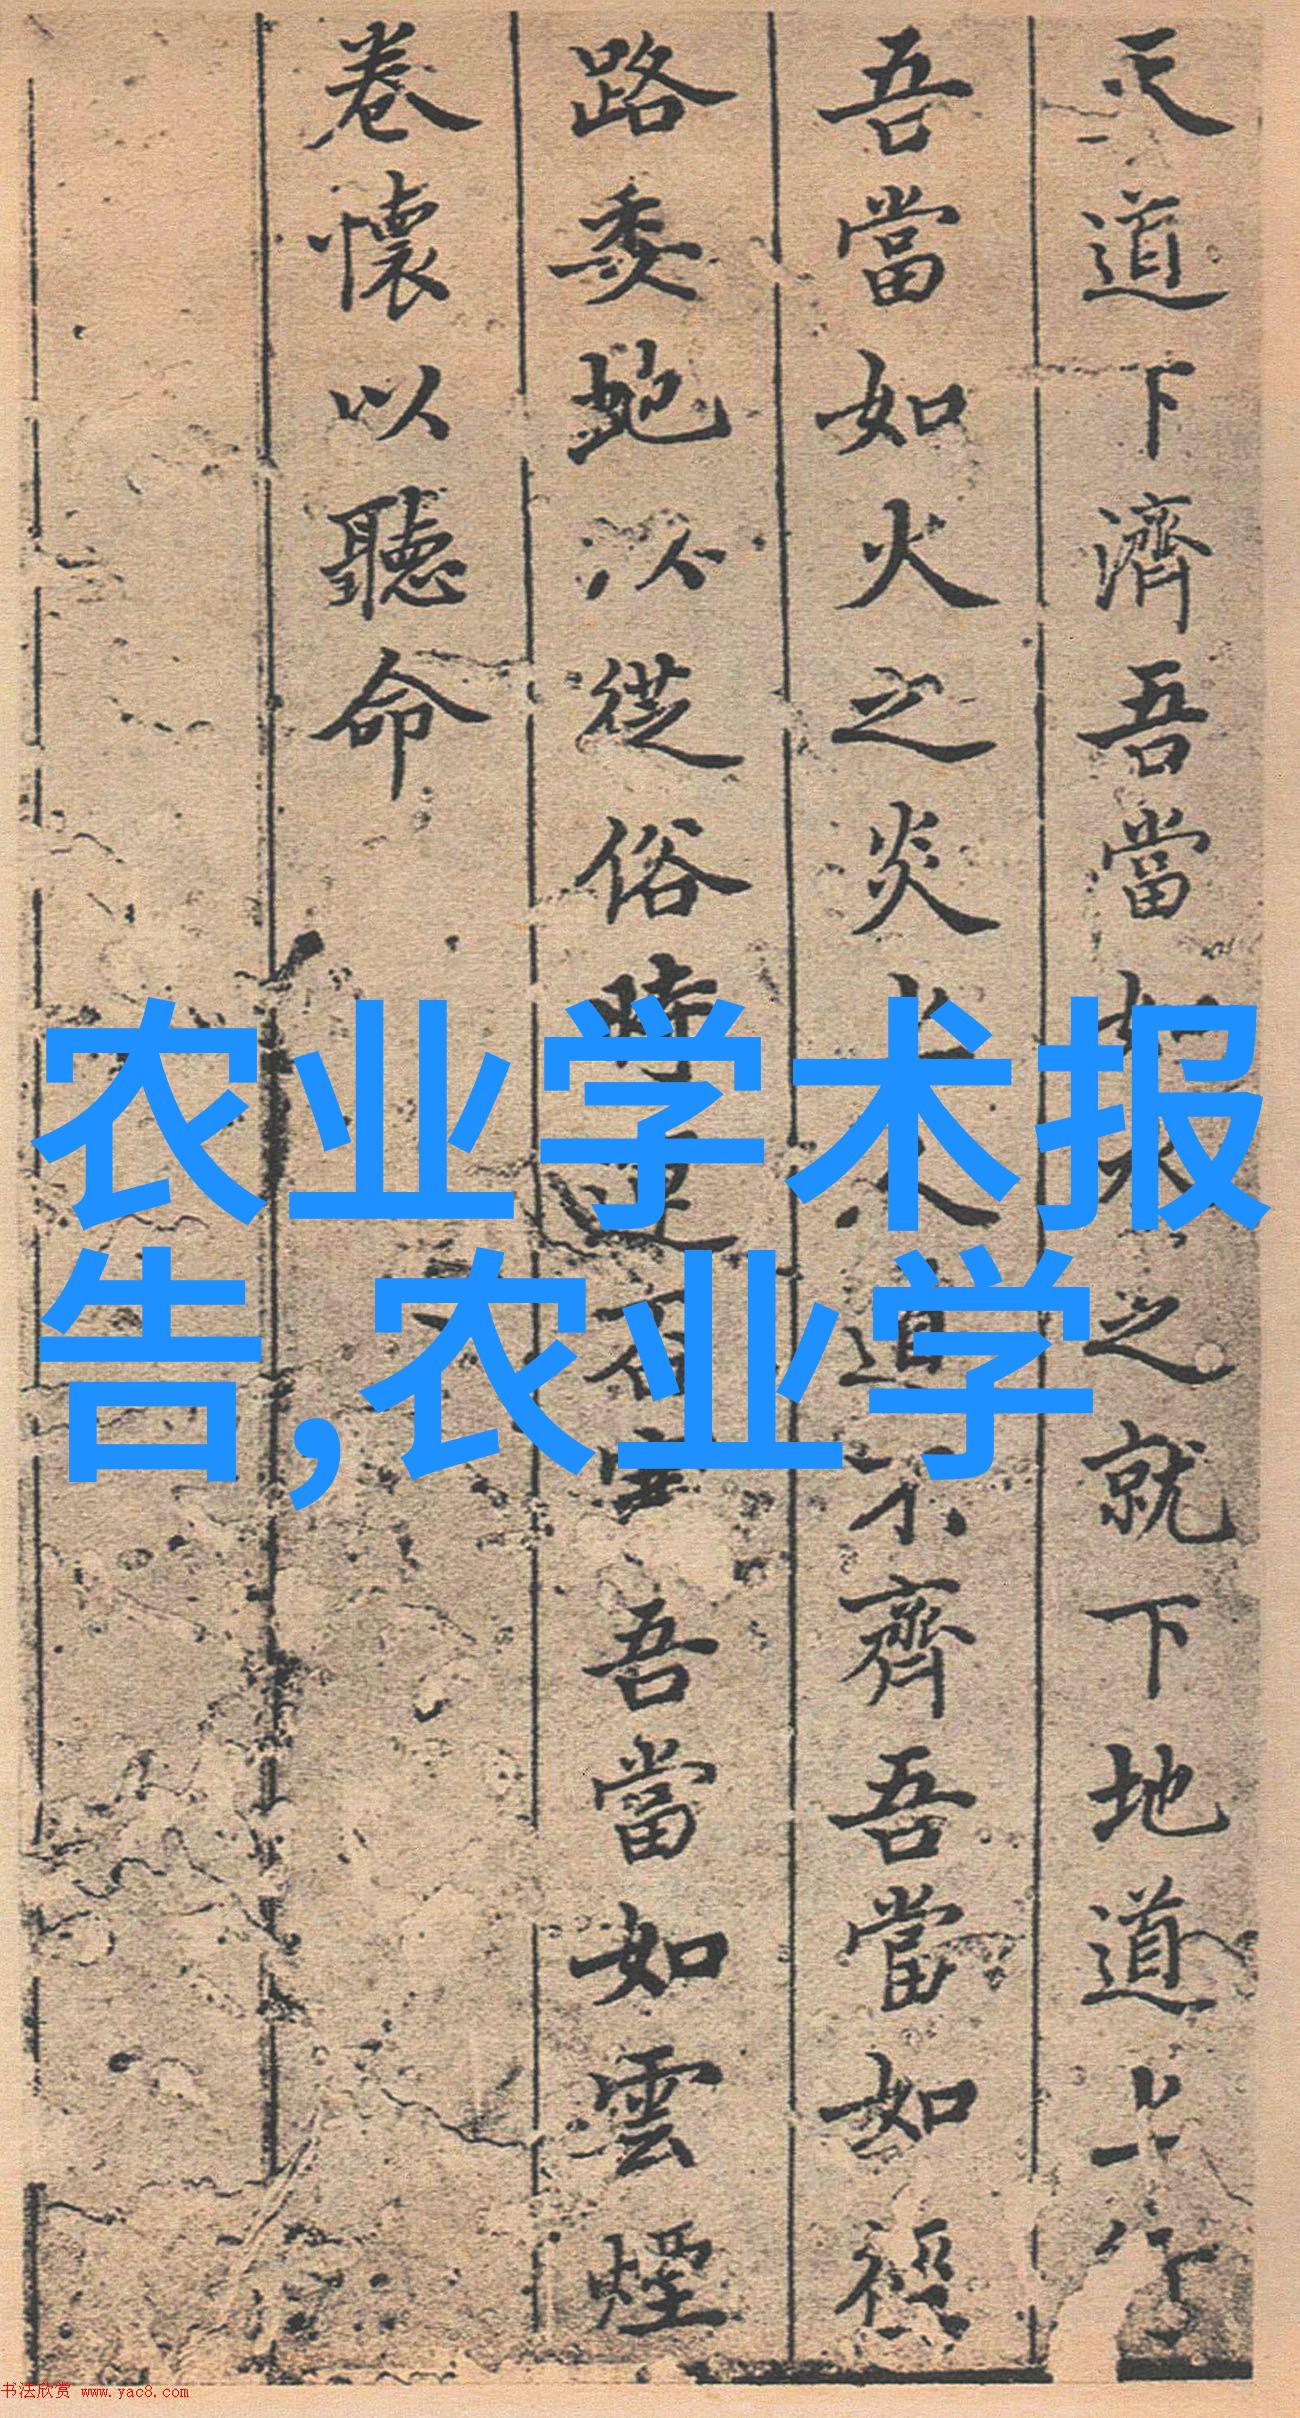 天道下濟吾當如水之就下地道上行
吾當如火之炎上人道不齊吾當如徑
路委虵以從俗時運否安吾當如雲煙
卷懷以聽命
农业学术报
告,农业学
书法欣赏 www.yac8.com